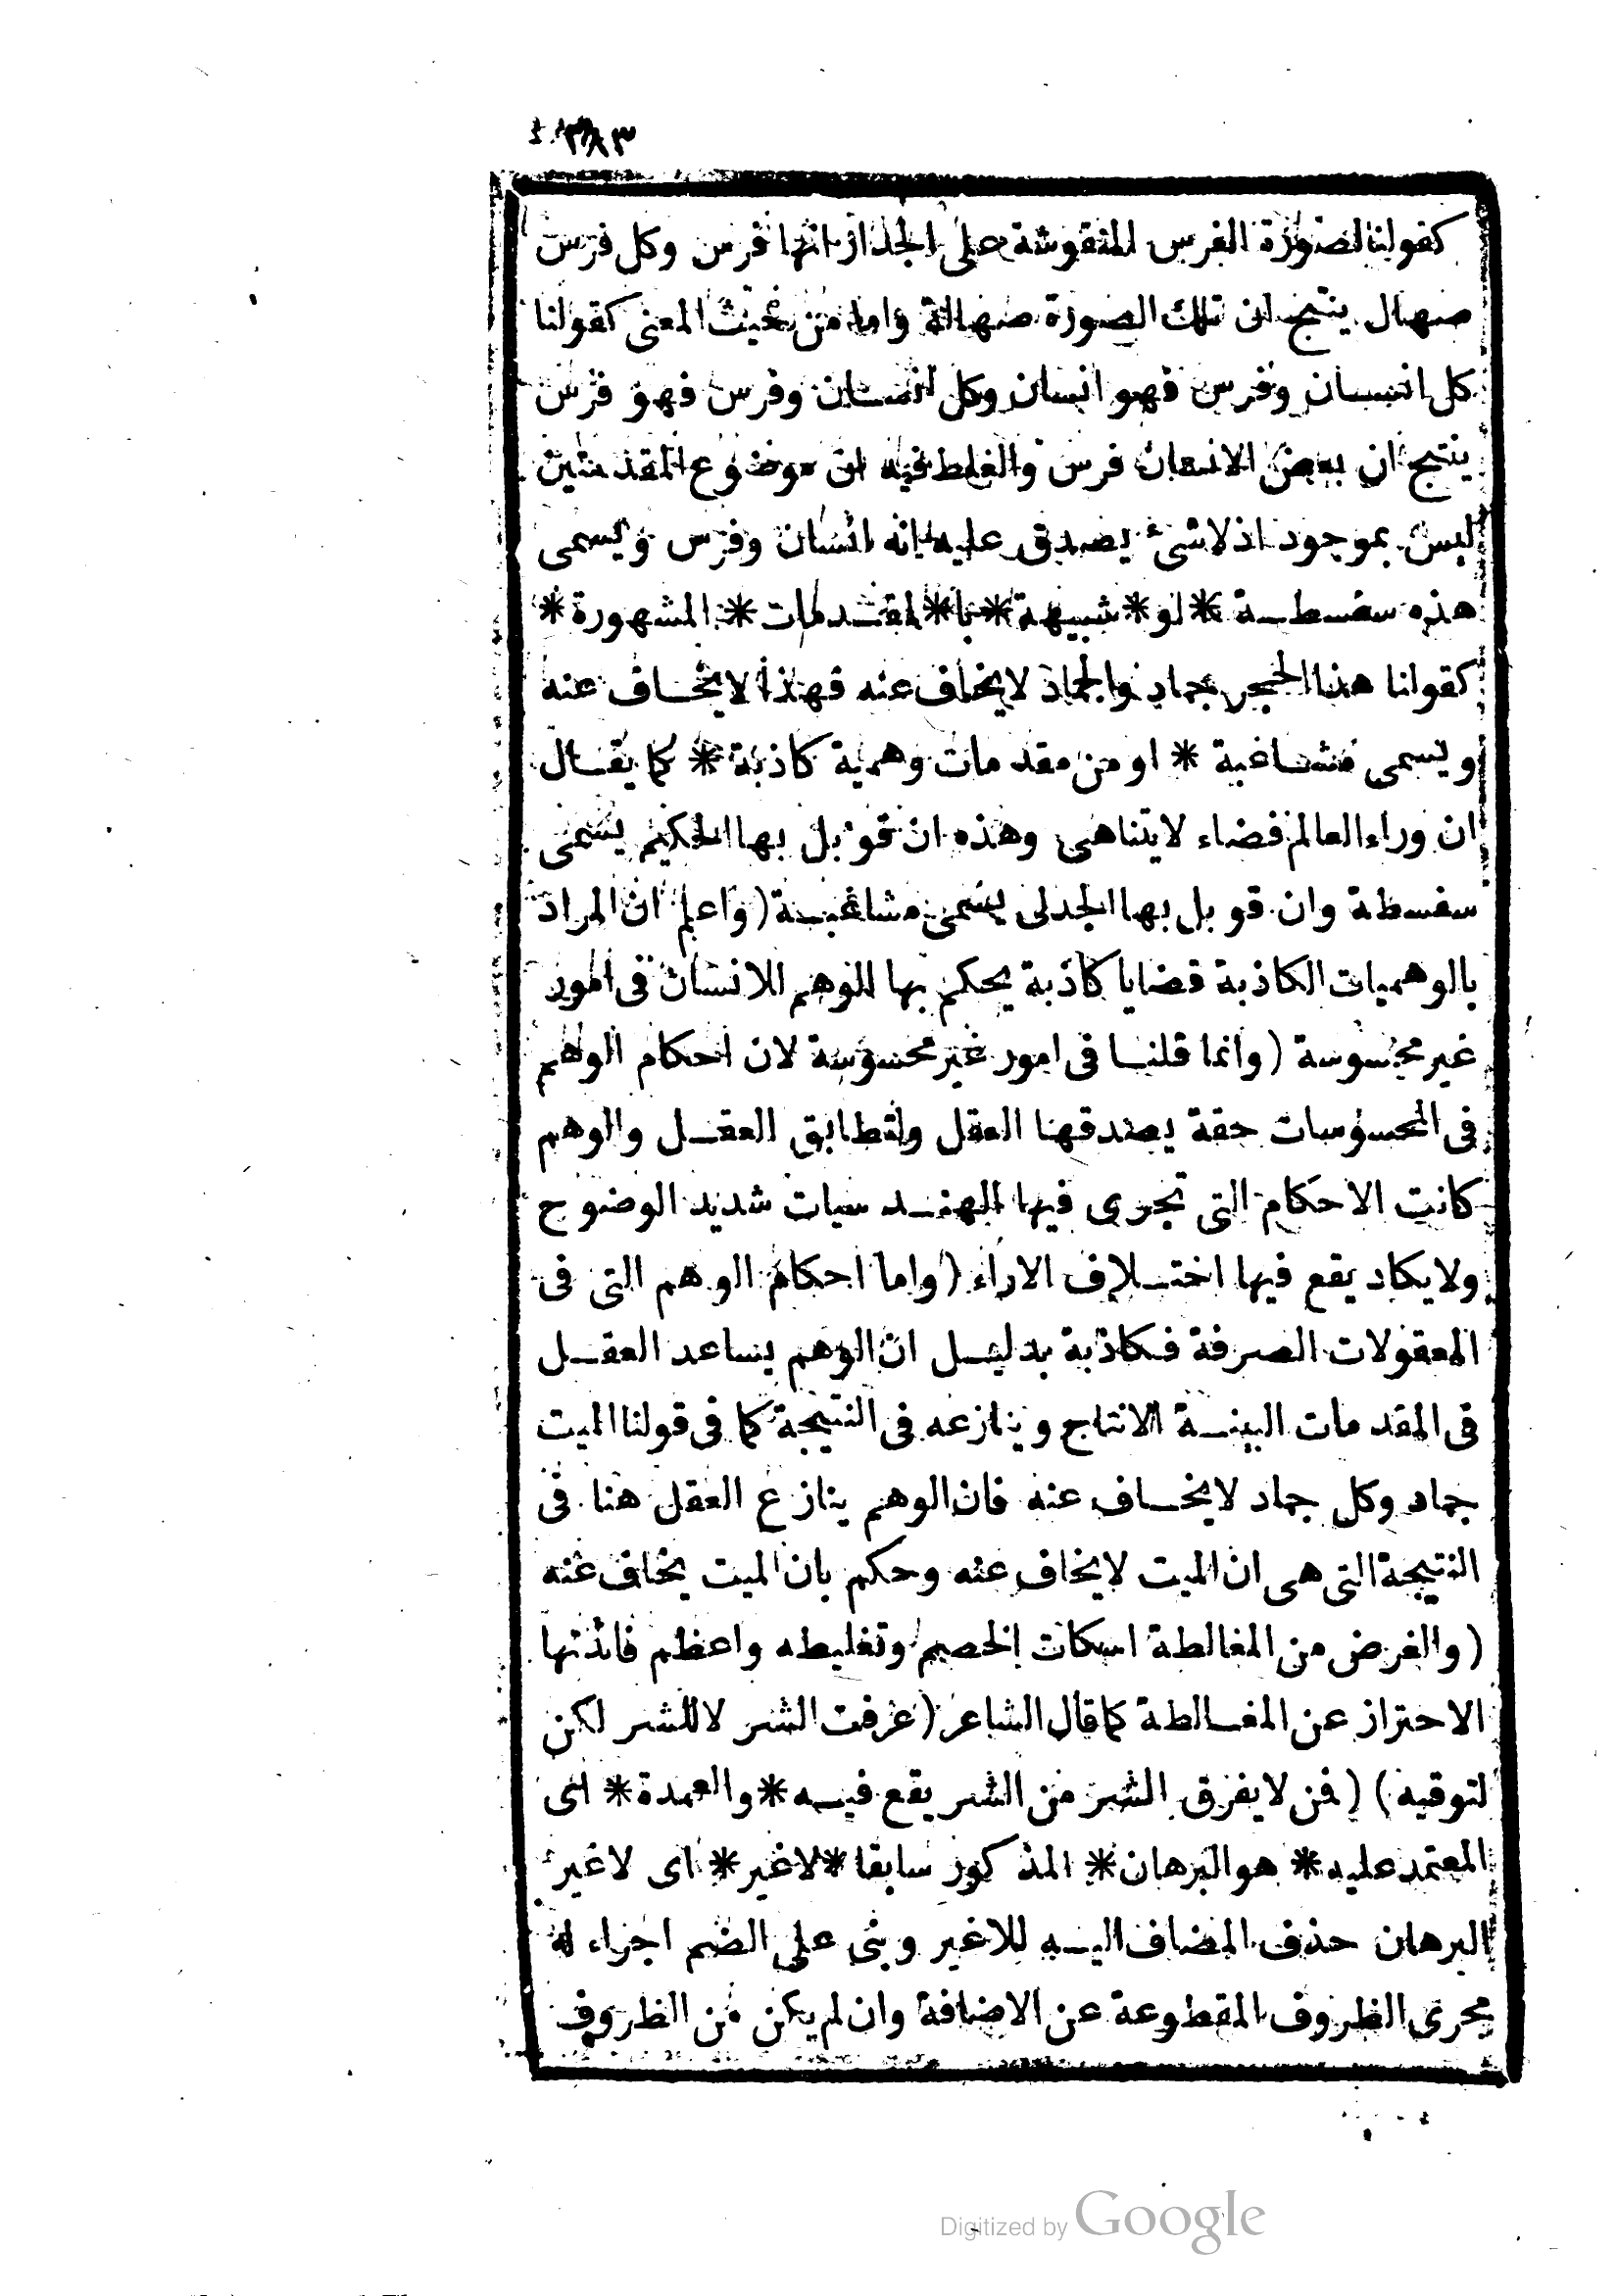 كقولنا لصورة الفرس المنقوشة على الجدار انها فرس وكل فرس
صهال ينتج ان تلك الصورة صهالة واما من حيث المعنى كقولنا
كل انسان وفرس فهو انسان وكل انسان وفرس فهو فرس
ينتج ان بعض الانسان فرس والغلط فيه ان موضوع المقدمتين
ليس بموجود اذ لاشئ يصدق عليه انه انسان وفرس ويسمى
هذه سفسطة * او * شبيهة * با * لمقدمات * المشهورة *
كقولنا هذا الحجر جماد والجماد لايخاف عنه فهذا لا يخاف عنه
ويسمى مشاغبة * او من مقدمات وهمية كاذبة * كما يقال
ان وراء العالم فضاء لايتناهى وهذه ان قوبل بها الحكيم يسمى
سفسطة وان قوبل بها الجدلى يسمى مشاغبة (واعلم ان المراد
بالوهميات الكاذبة قضايا كاذبة يحكم بها الوهم للانسان فى امور
غير محسوسة (وانما قلنا فى امور غير محسوسة لان احكام الوهم
فى المحسوسات حقة يصدقها العقل ولتطابق العقل والوهم
كانت الاحكام التى تجرى فيها الهندسيات شديد الوضوح
ولايكاد يقع فيها اختلاف الاراء (واما احكام الوهم التى فى
المعقولات الصرفة فكاذبة بدليل ان الوهم يساعد العقل
فى المقدمات البينة الانتاج وينازعه فى النتيجة كما فى قولنا الميت
جماد وكل جماد لايخاف عنه فان الوهم ينازع العقل هنا فى
النتيجة التى هى ان الميت لايخاف عنه وحكم بان الميت يخاف عنه
(والغرض من المغالطة اسكات الخصم وتغليطه واعظم فائدتها
الاحتراز عن المغالطة كما قال الشاعر (عرفت الشر لا للشر لكن
لتوقيه) (فمن لا يفرق الشر من الشر يقع فيه * والعمدة * اى
المعتمد عليه * هو البرهان * المذكور سابقا * لاغير * اى لاغير
البرهان حذف المضاف اليه للاغير وبنى على الضم اجراء له
مجرى الظروف المقطوعة عن الاضافة وان لم يكن من الظروف
Digitized by Google